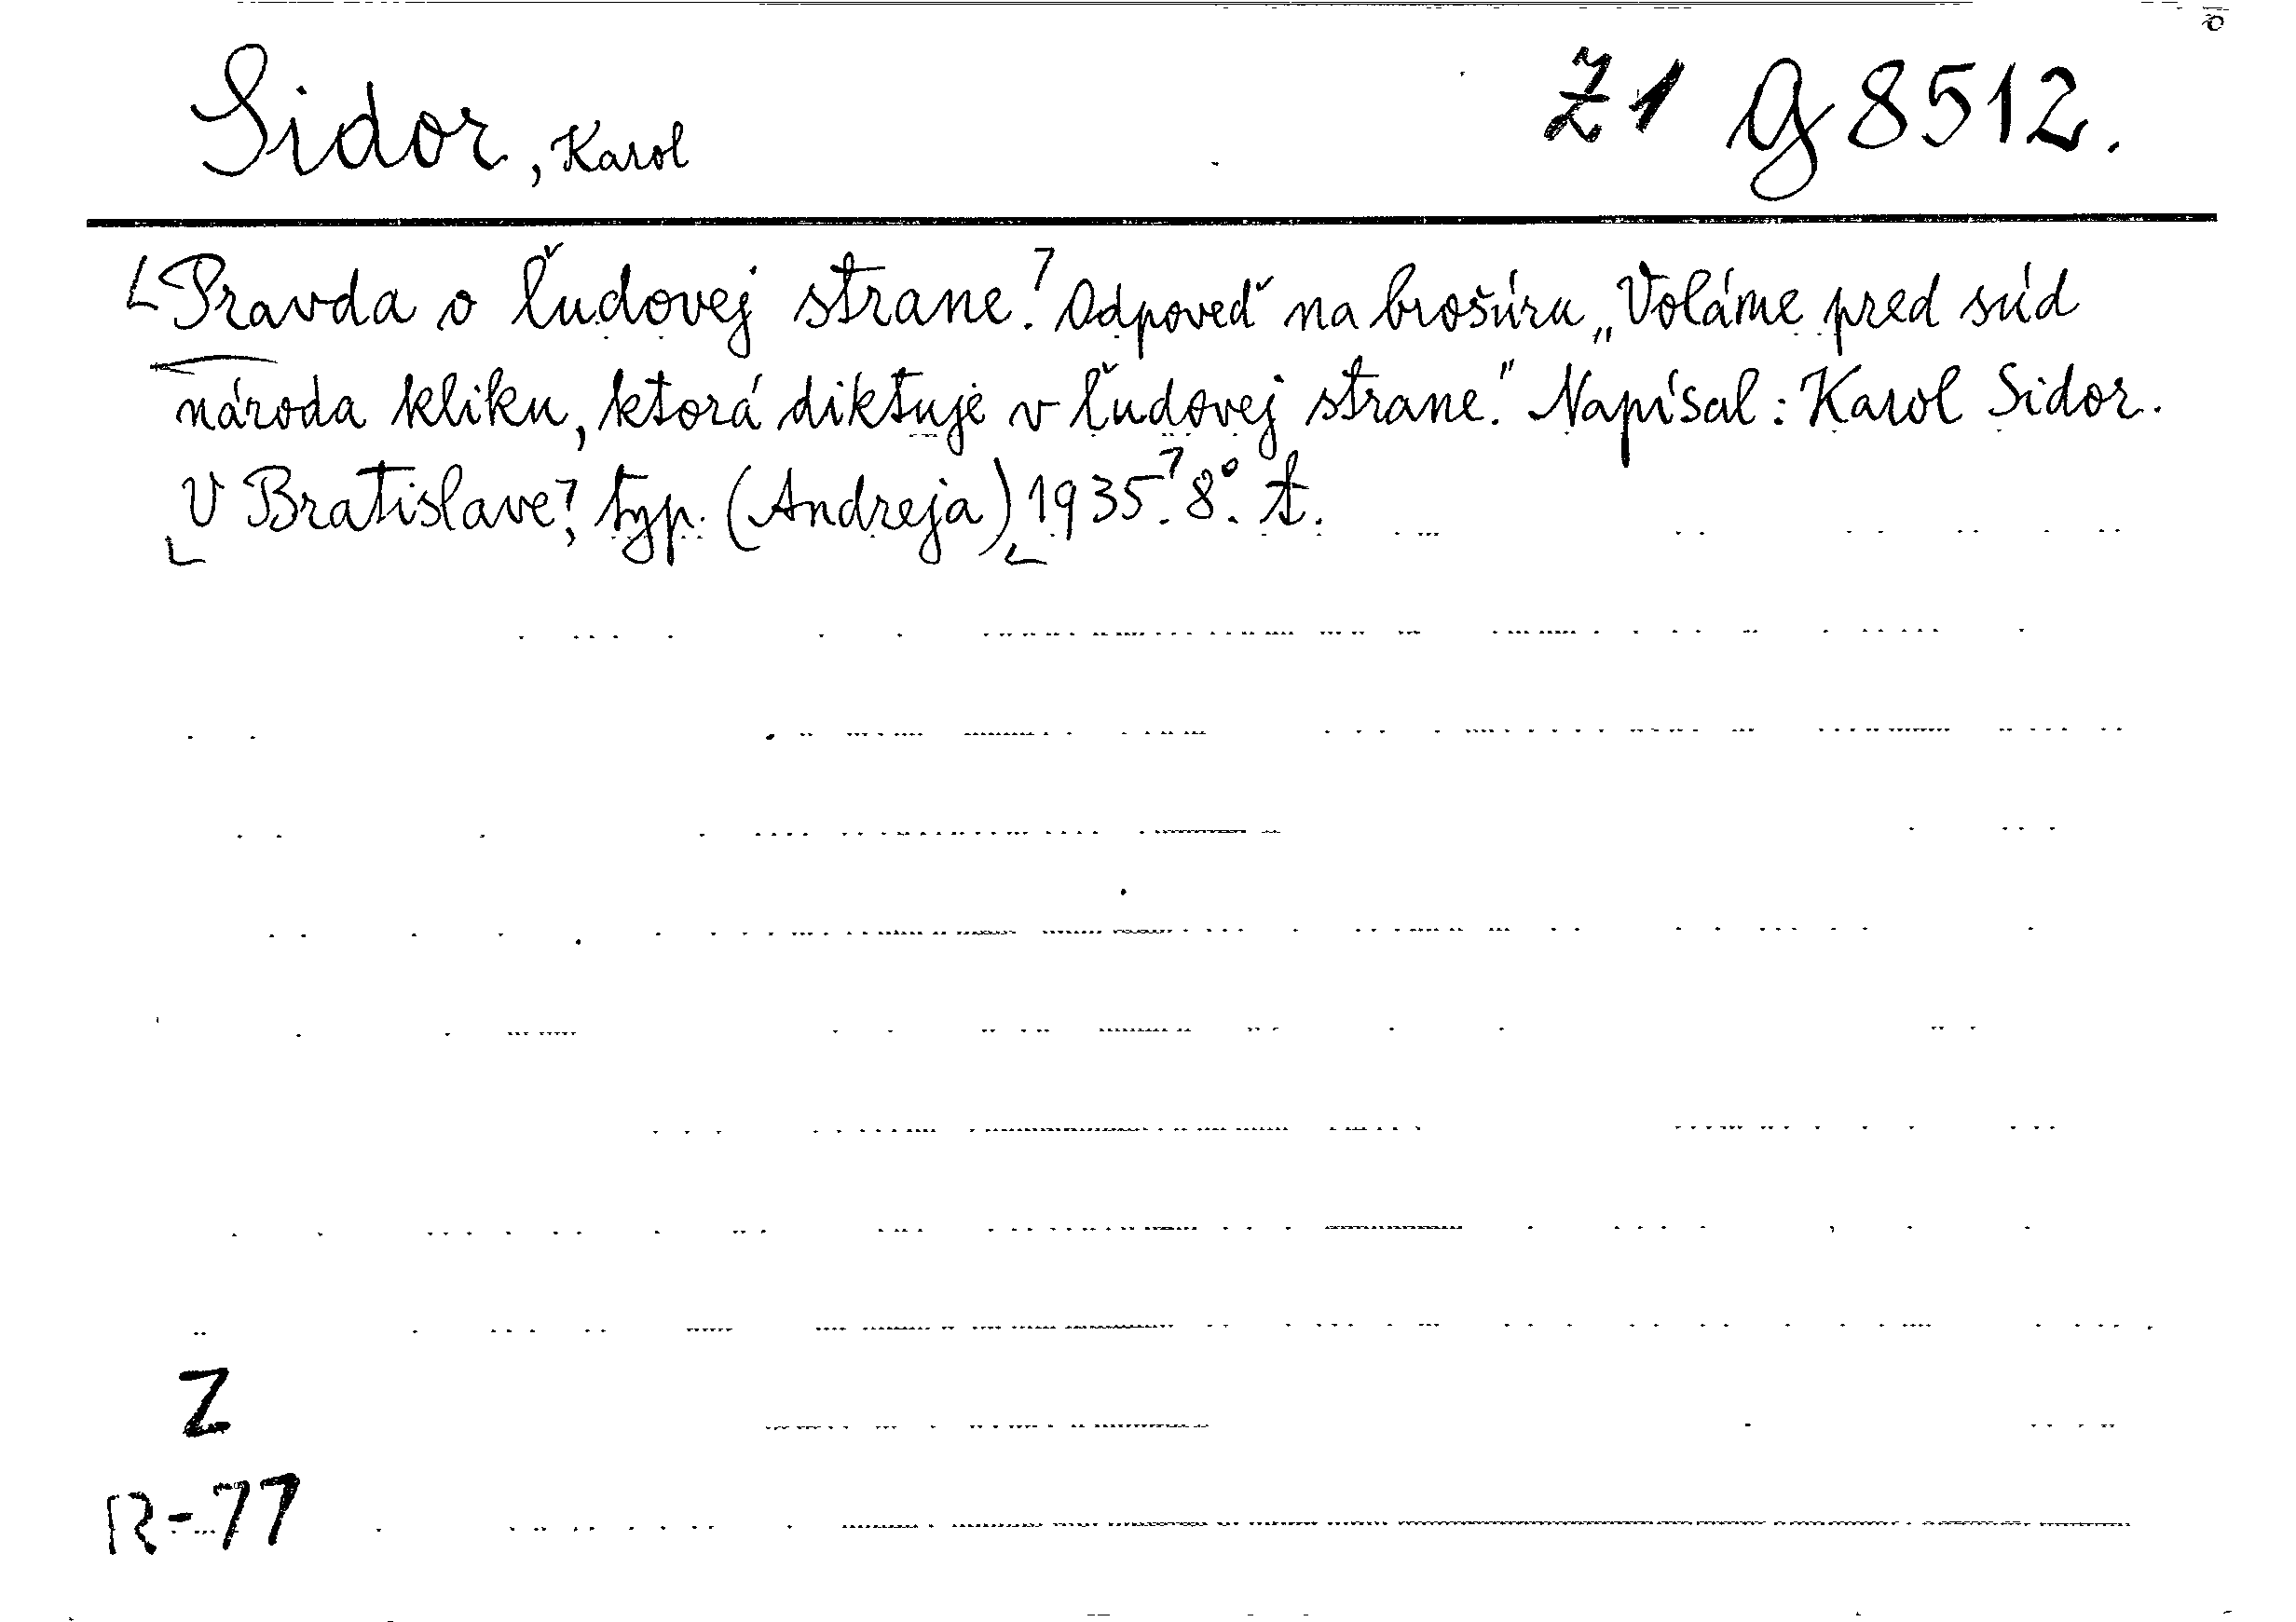 Sidor, Karol
Z1 G 8512.
Pravda o ľudovej strane. Odpoveď na brošúru „Voláme pred súd
národa kliku, ktorá diktuje v ľudovej strane." Napísal: Karol Sidor.
V Bratislave, typ. (Andreja) 1935. 8°. t.
Z
R-77